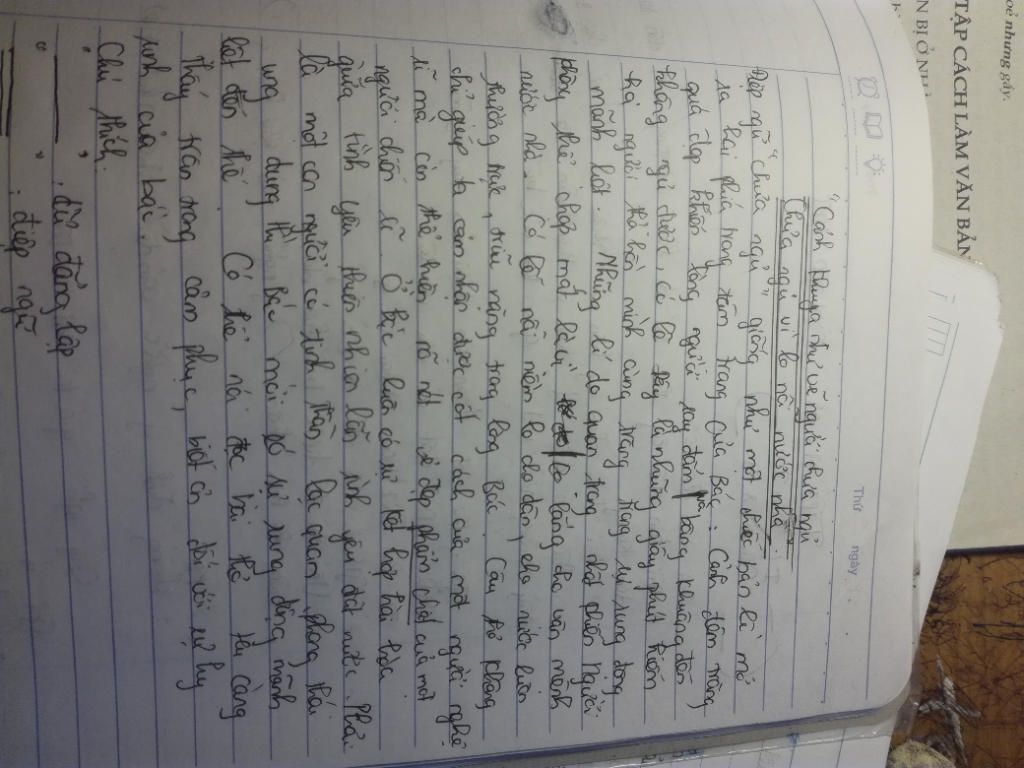 oẻ nhưng gầy.
TẬP CÁCH LÀM VĂN BẢN
N BỊ Ở NH
Thứ ngày
"Cảnh khuya như vẽ người chưa ngủ
Chưa ngủ vì lo nỗi nước nhà."
Điệp ngữ "chưa ngủ" giống như một chiếc bản lề mở
ra hai phía trong tâm trạng của Bác. Cảnh đêm trăng
quá đẹp khiến lòng người say đắm, bâng khuâng đến
không ngủ được, có lẽ đây là những giây phút hiếm
hoi người thả hồn mình cùng trăng trong sự rung động
mãnh liệt. Những lí do quan trọng nhất khiến Người
không thể chợp mắt là vì lo lắng cho vận mệnh
nước nhà. Có lẽ nỗi niềm lo cho dân, cho nước luôn
thường trực, trĩu nặng trong lòng Bác. Câu thơ không
chỉ giúp ta cảm nhận được cốt cách của một người nghệ
sĩ mà còn thể hiện rõ nét vẻ đẹp phẩm chất của một
người chiến sĩ. Ở Bác luôn có sự kết hợp hài hòa
giữa tình yêu thiên nhiên lẫn tình yêu đất nước. Phải
là một con người có tinh thần lạc quan, phong thái
ung dung thì Bác mới có sự rung động mãnh
liệt đến thế. Có thể nói đọc bài thơ ta càng
thấy trân trọng cảm phục, biết ơn đối với sự hy
sinh của bác.
Chú thích:
: đẳng lập
: điệp ngữ